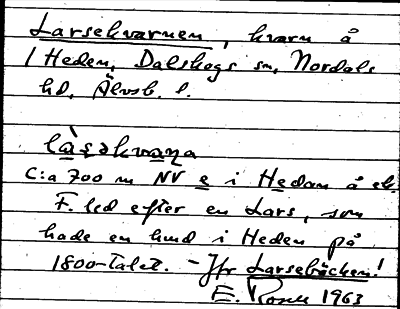 Larsekvarnen, kvarn å
1 Heden, Dalskogs sn, Nordals
hd, Älvsb. l.
làsəkvaṇa
C:a 700 m NV e i Hedan å ek.
F. led efter en Lars, som
hade en hund i Heden på
1800-talet. - Jfr Larsebäcken!
E. Rosén 1963